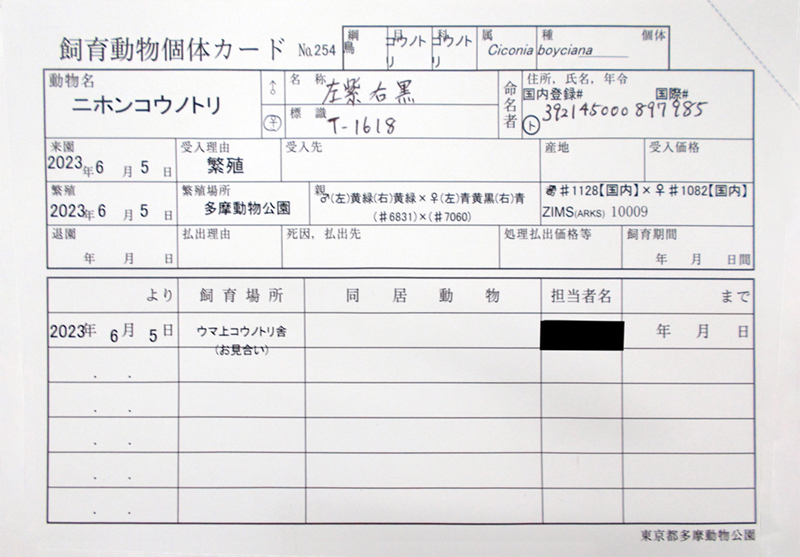 飼育動物個体カード No.254
綱 目 科 属 種 個体
鳥 コウノトリ コウノトリ Ciconia boyciana
動物名 ♂ 名称 命名者 住所, 氏名, 年令
ニホンコウノトリ 左紫右黒 国内登録# 国際#
♀ 標識 ト 392145000897985
T-1618
来園 受入理由 受入先 産地 受入価格
2023年 6月 5日 繁殖
繁殖 繁殖場所 親 ♂(左)黄緑(右)黄緑×♀(左)青黄黒(右)青 ♯1128【国内】×♀♯1082【国内】
2023年 6月 5日 多摩動物公園 (♯6831)×(♯7060) ZIMS(ARKS) 10009
退園 払出理由 死因, 払出先 処理払出価格等 飼育期間
年 月 日 年 月 日間
より 飼育場所 同居動物 担当者名 まで
2023年 6月 5日 ウマ上コウノトリ舎 年 月 日
(お見合い)
東京都多摩動物公園